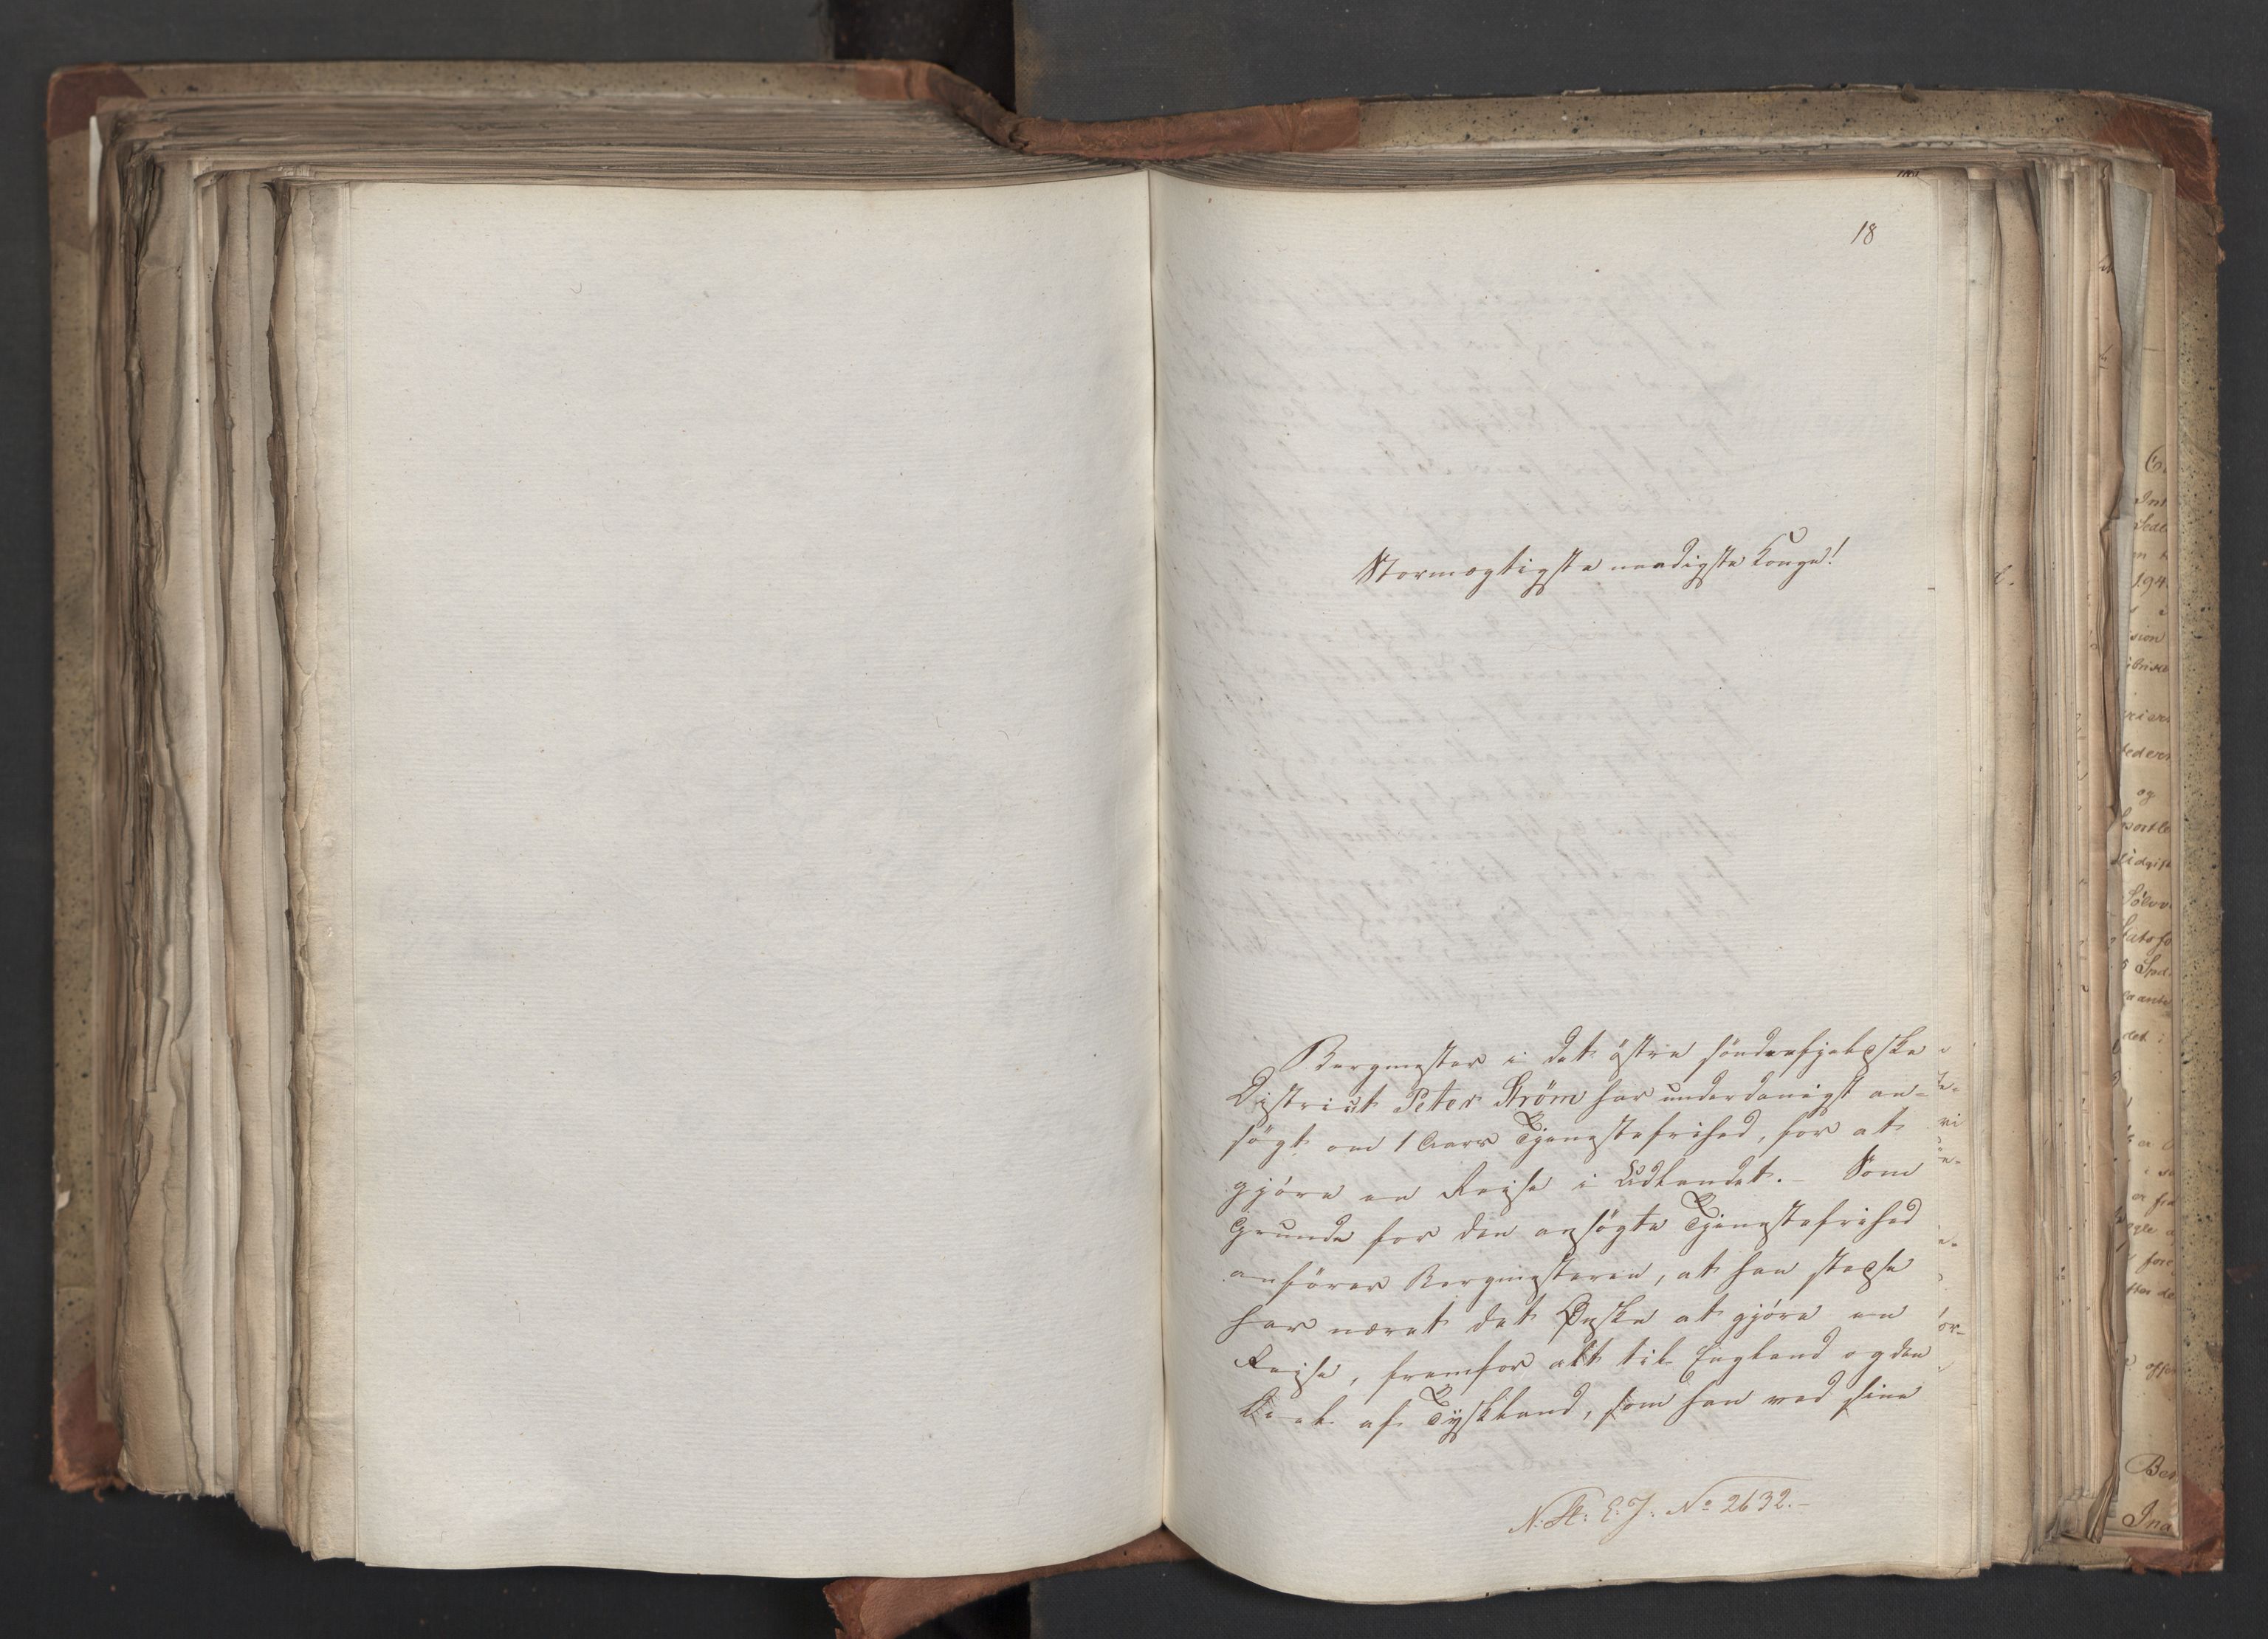 18
Stormægtigste naadigste Konge!
Bergmester i det östre söndenfjeldske
District Peter Strøm har underdanigst an-
sögt om 1 Aars Tjenestefrihed, for at
gjöre en Reise i Udlandet. – Som
Grunde for den ansögte Tjenestefrihed
anförer Bergmesteren, at han stedse
har næret det Ønske at gjöre en
Reise, fremfor alt til England og den
Deel af Tydskland, som han ved sine
N: St: E: J: No 2632. –